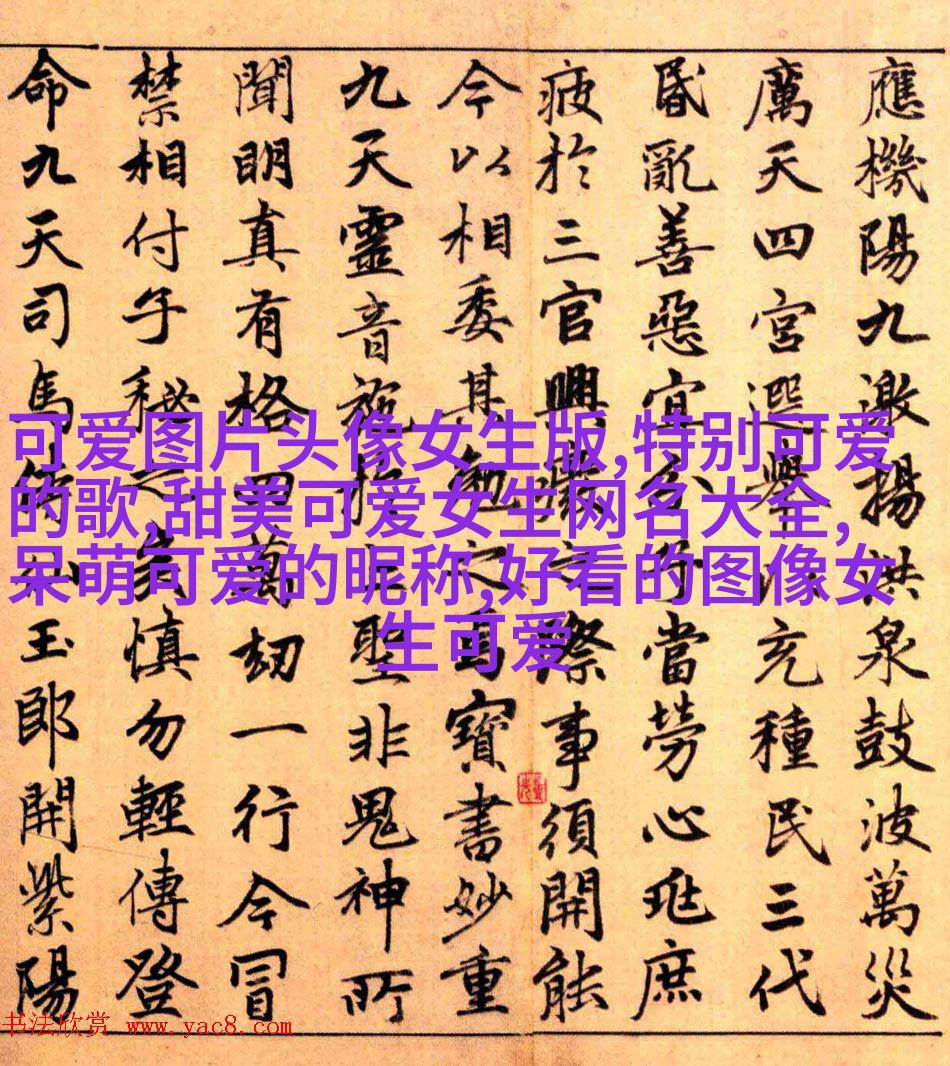 應機陽九激揚洪泉鼓波萬災
厲天四宮選舉充種民三代
昏亂善惡宜分子當勞心兆庶
疲於三官興廢之際事須開能
今以相委其勉之焉寶書妙重
九天靈音施於上聖非鬼神所
聞明真有格四萬劫一行今冒
禁相付子秘之哉慎勿輕傳登
命九天司馬侍仙玉郎開紫陽
可爱图片头像女生版,特别可爱
的歌,甜美可爱女生网名大全,
呆萌可爱的昵称,好看的图像女
生可爱
书法欣赏 www.yac8.com